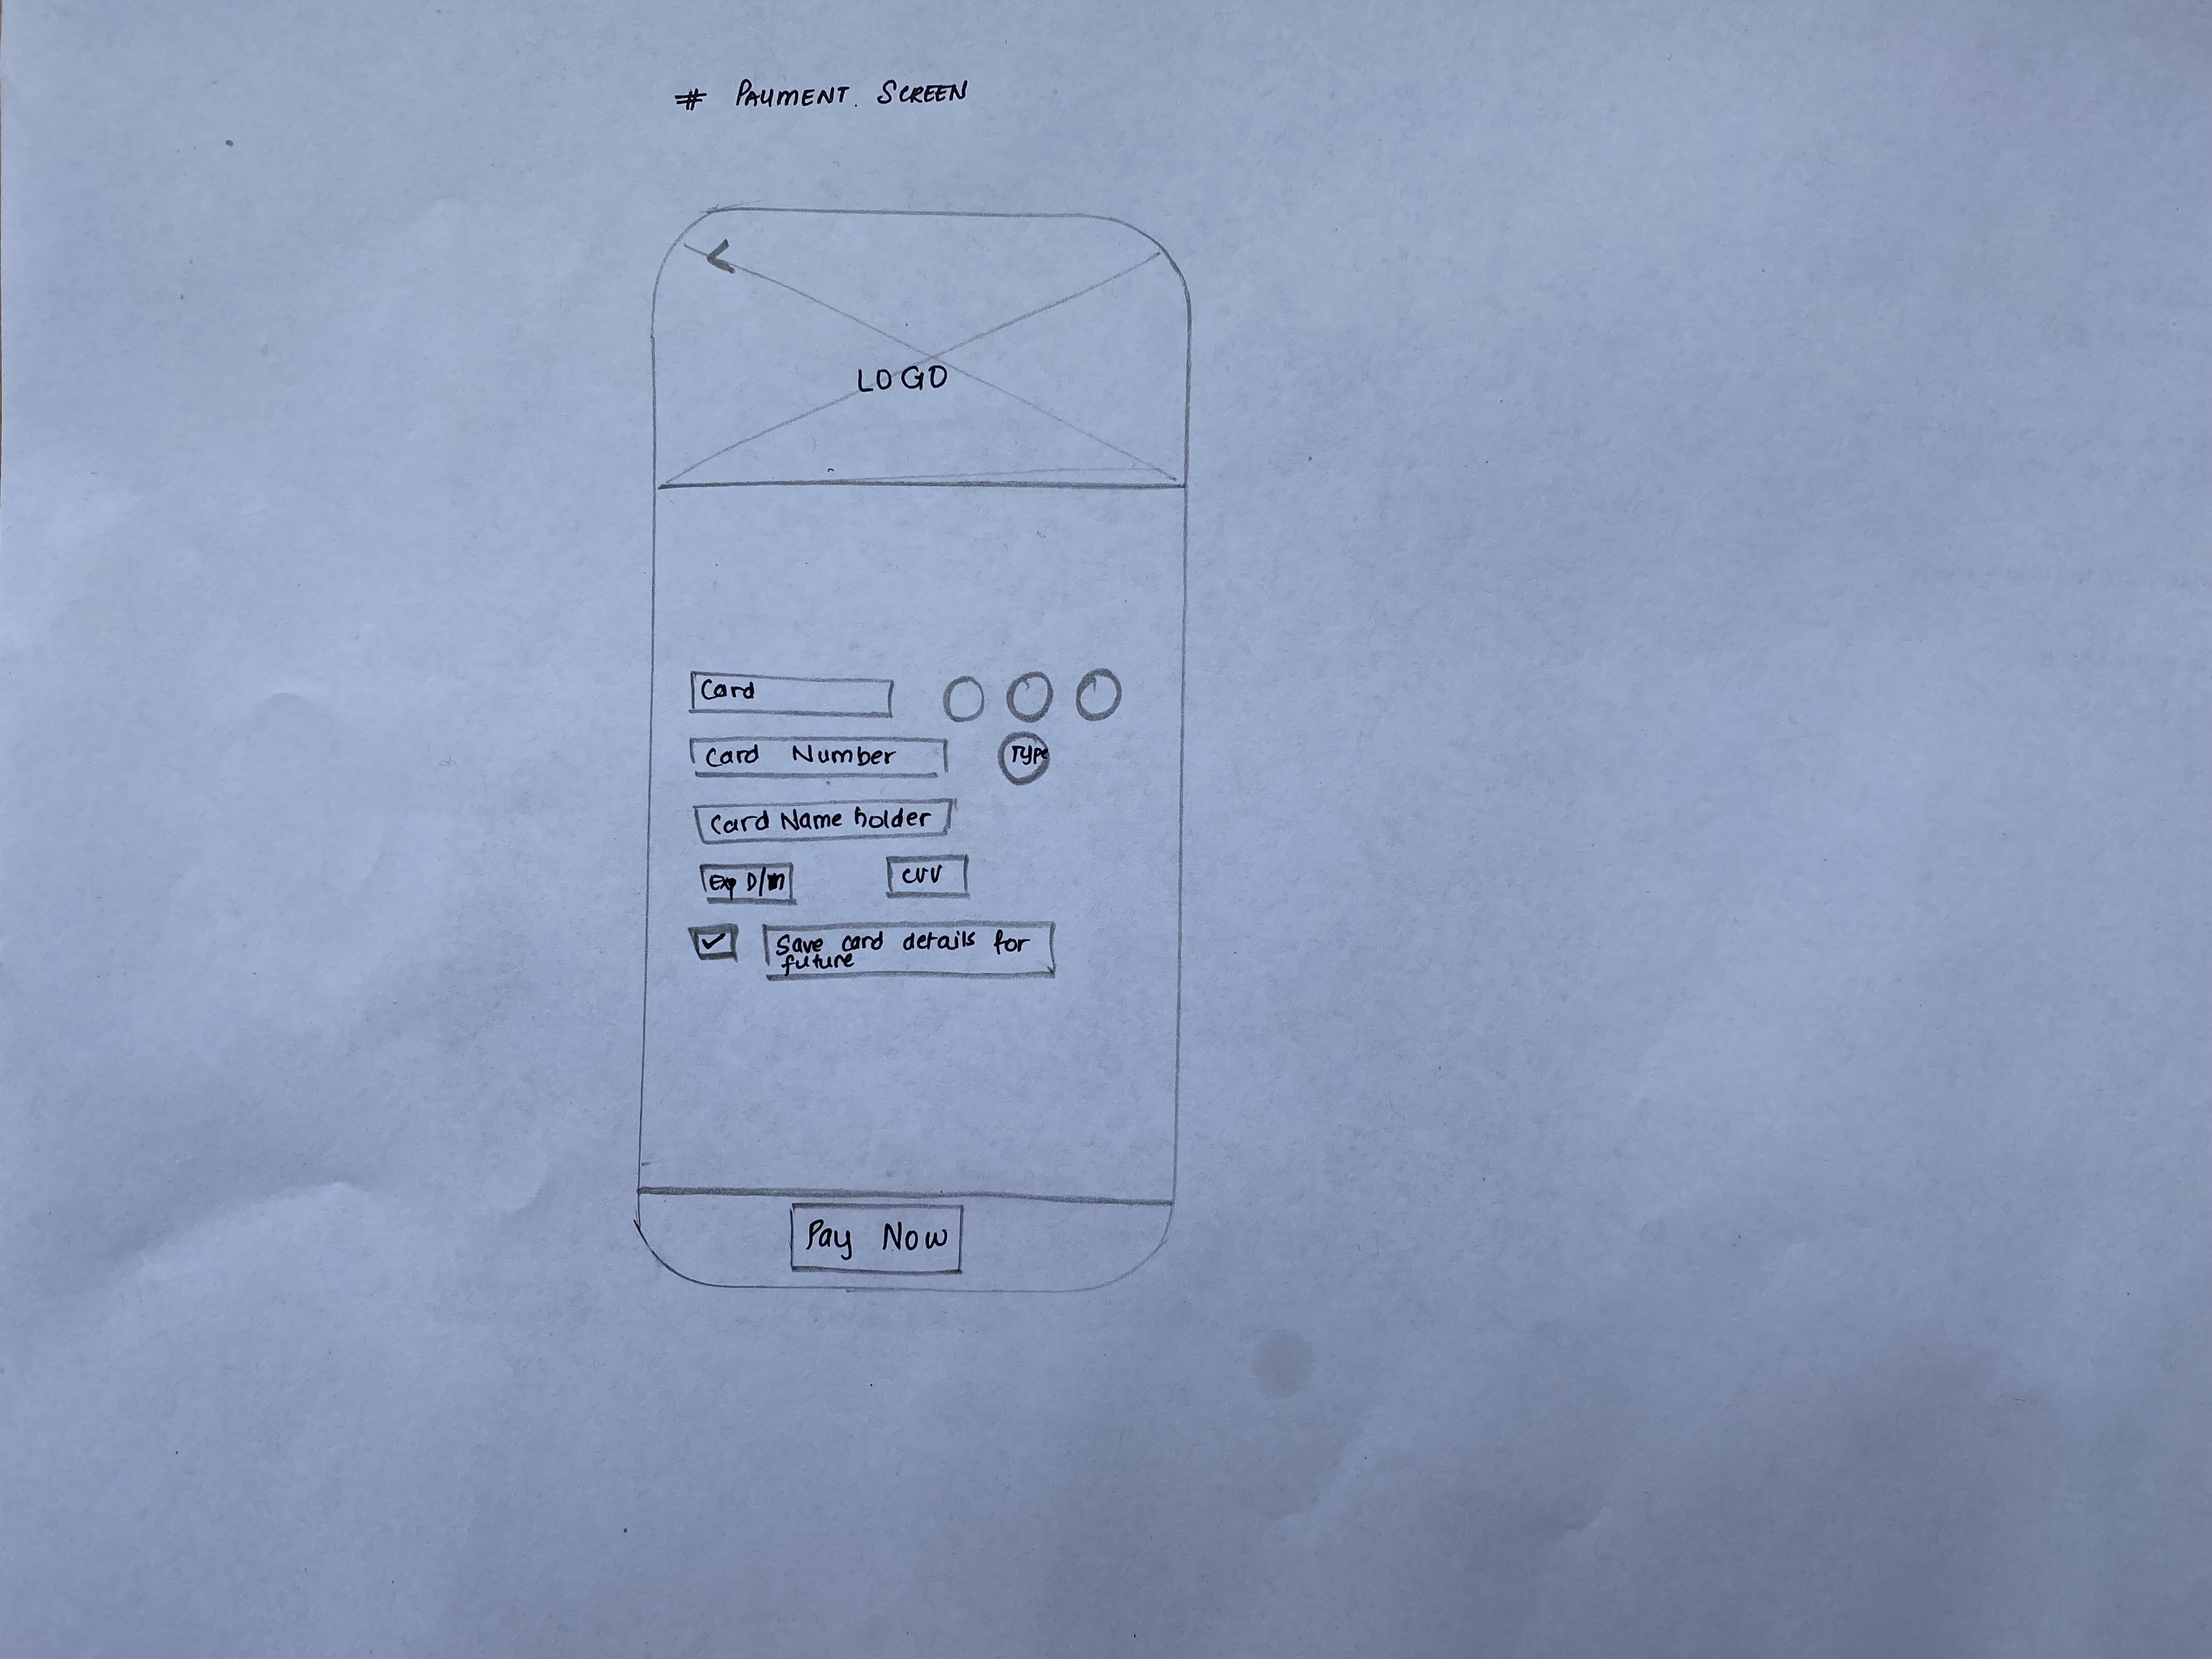 # PAYMENT SCREEN
<
LOGO
Card
Card Number
TYPE
Card Name holder
Exp D/M
CVV
Save card details for
future
Pay Now